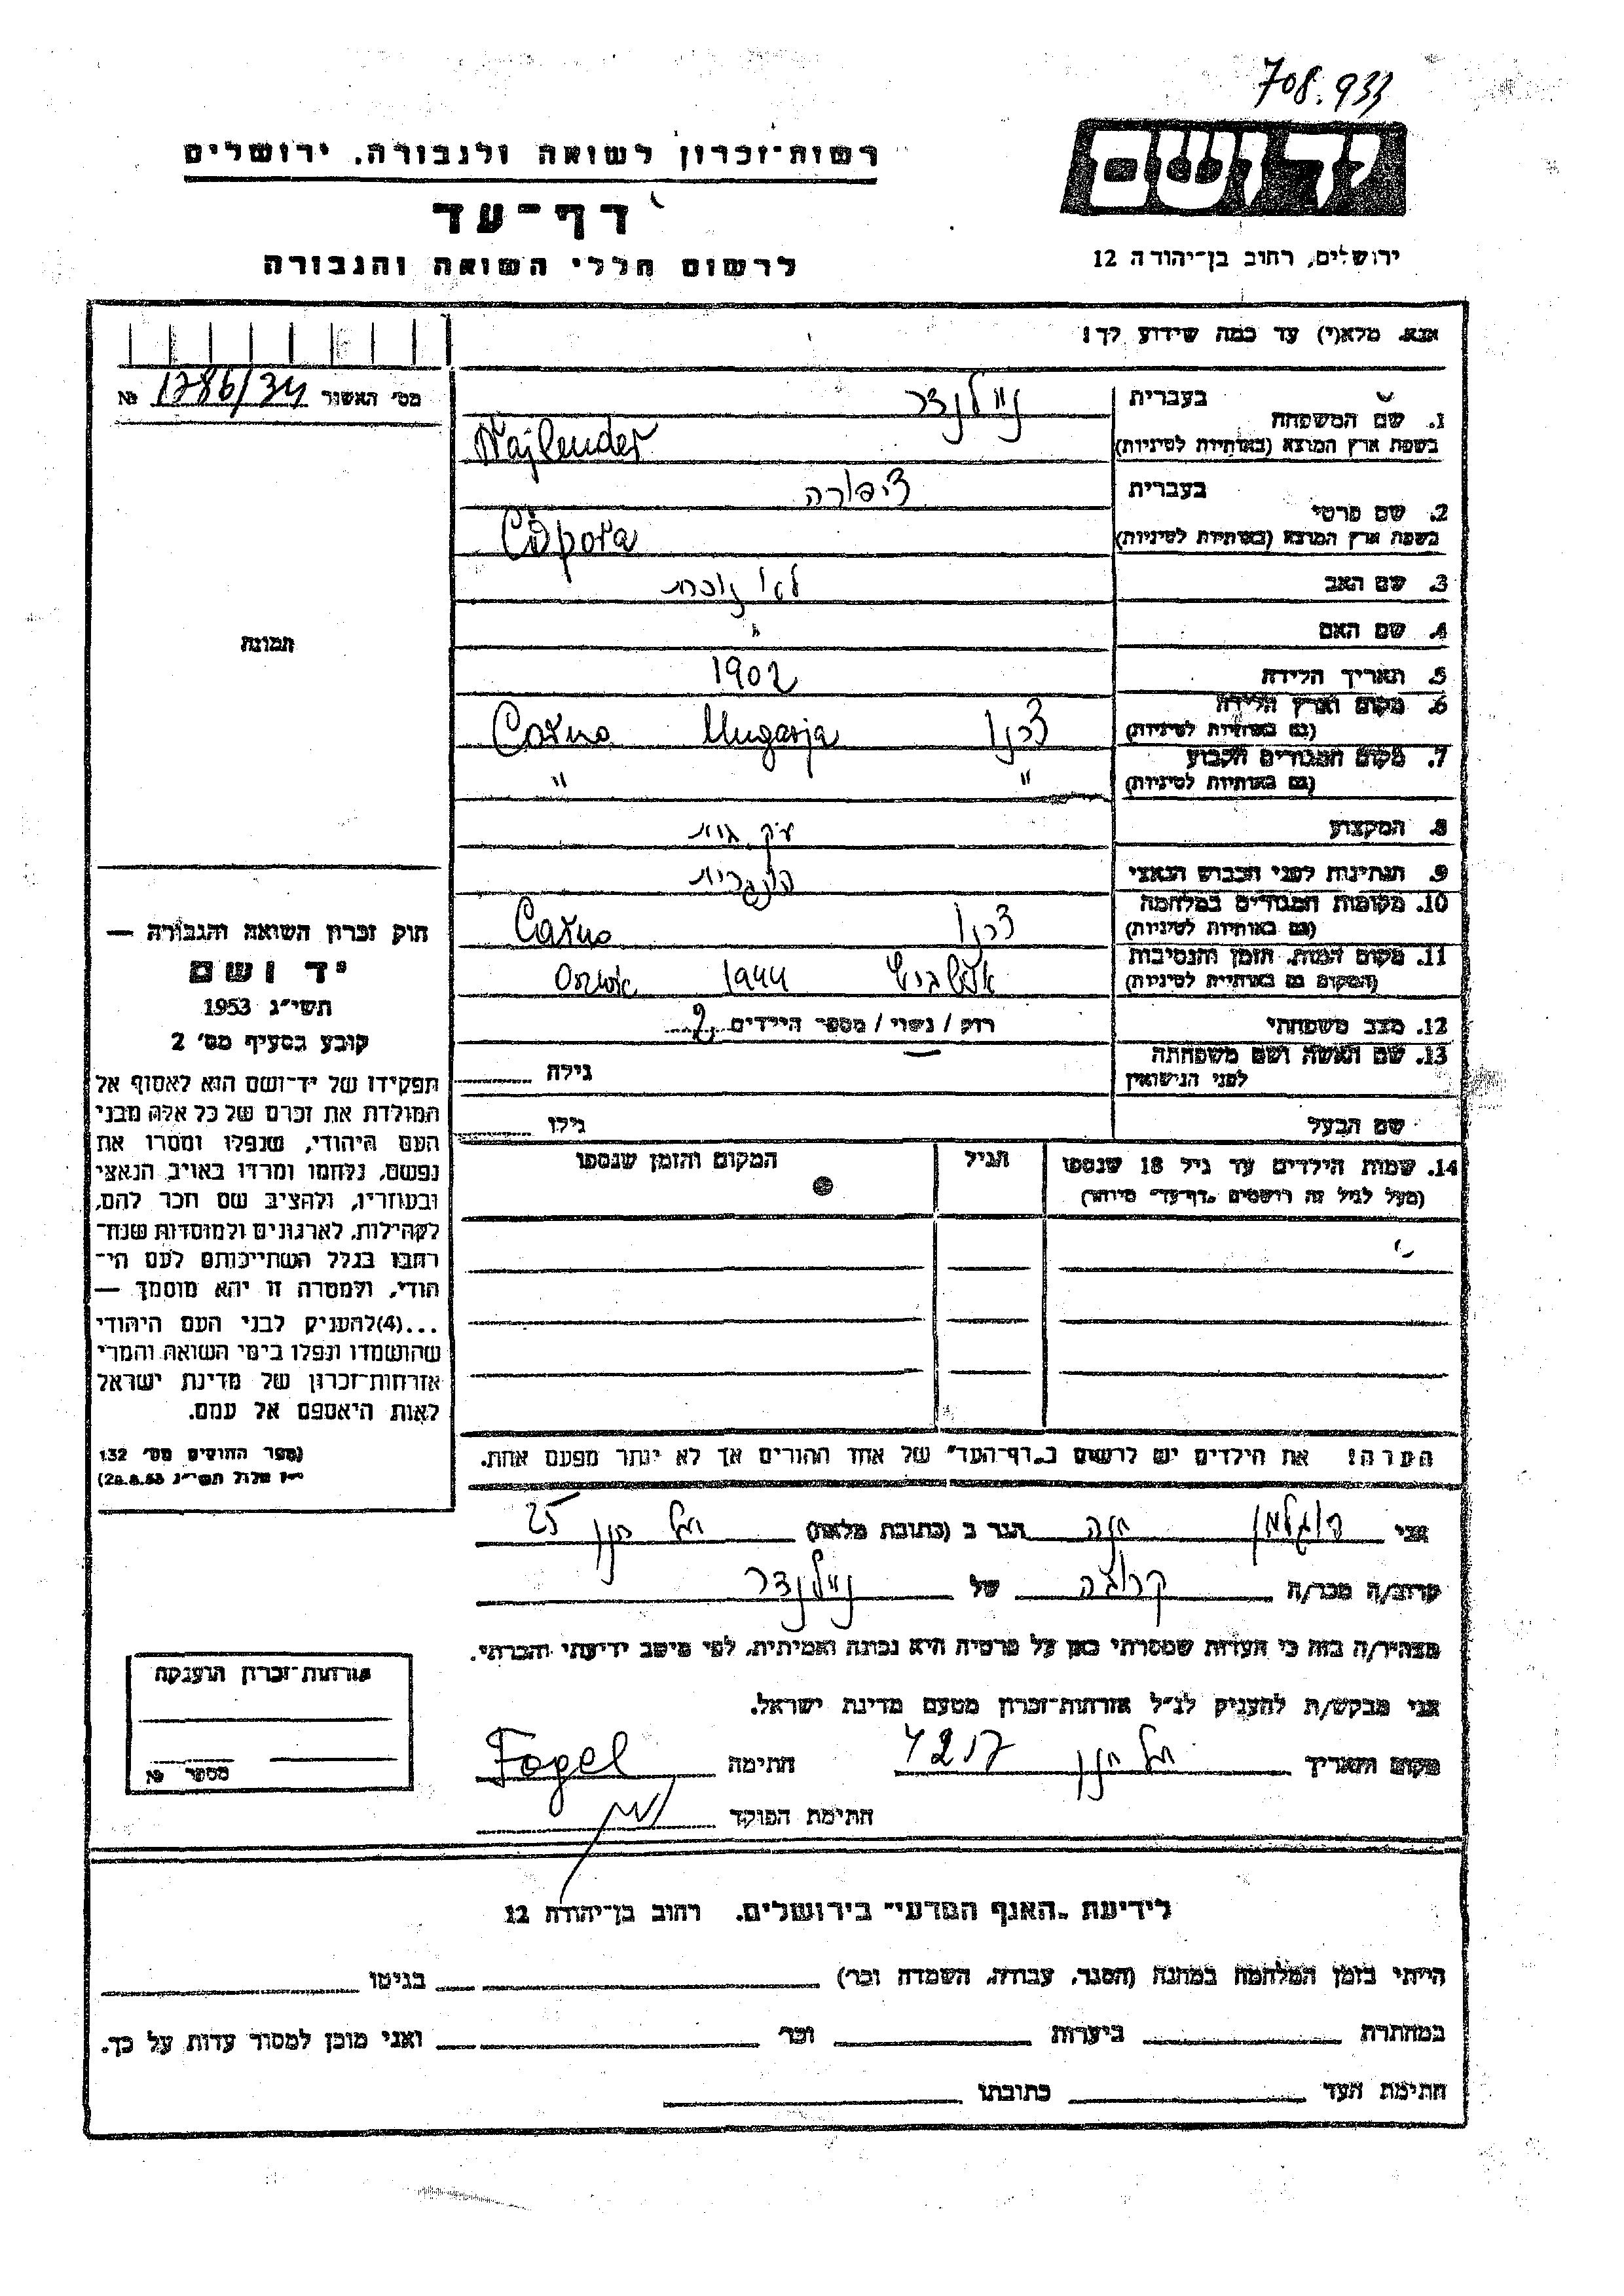 708.933
רשות־זכרון לשואה ולגבורה, ירושלים
יד ושם
דף־עד
ירושלים, רחוב בן־יהודה 12
לרשום חללי השואה והגבורה
אנא, מלא(י) עד כמה שידוע לך!
מס׳ האשור 1786/34 №
1. שם המשפחה
בעברית
ניילנדר
בשפת ארץ המוצא (באותיות לטיניות)
Najlender
2. שם פרטי
בעברית
ציפורה
בשפת ארץ המוצא (באותיות לטיניות)
Cipora
3. שם האב
לא זוכרת
4. שם האם
"
תמונה
5. תאריך הלידה
1902
6. מקום וארץ הלידה
(גם באותיות לטיניות)
Carno Ungarja
7. מקום המגורים הקבוע
(גם באותיות לטיניות)
" "
8. המקצוע
עק. בית
9. הנתינות לפני הכבוש הנאצי
הונגרית
10. מקומות המגורים במלחמה
(גם באותיות לטיניות)
Carno
11. מקום המות, הזמן והנסיבות
(המקום גם באותיות לטיניות)
אושביץ 1944
12. מצב משפחתי
רווק / נשוי / מספר הילדים 2
13. שם האשה ושם משפחתה
לפני הנישואין
גילה
שם הבעל
גילו
14. שמות הילדים עד גיל 18 שנספו
(מעל לגיל זה רושמים "דף־עד" מיוחד)
הגיל
המקום והזמן שנספו
הערה! את הילדים יש לרשום ב"דף־העד" של אחד ההורים אך לא יותר מפעם אחת.
חוק זכרון השואה והגבורה —
יד ושם
תשי״ג 1953
קובע בסעיף מס׳ 2
תפקידו של יד־ושם הוא לאסוף אל
המולדת את זכרם של כל אלה מבני
העם היהודי, שנפלו ומסרו את
נפשם, נלחמו ומרדו באויב הנאצי
ובעוזריו, ולהציב שם וזכר להם,
לקהילות, לארגונים ולמוסדות שנח־
רבו בגלל השתייכותם לעם הי־
הודי, ולמטרה זו יהא מוסמך —
...(4)להעניק לבני העם היהודי
שהושמדו ונפלו בימי השואה והמרי
אזרחות־זכרון של מדינת ישראל
לאות היאספם אל עמם.
(ספר החוקים מס׳ 132
י״ז אלול תשי״ג 28.8.53)
אני חנה הגר ב (כתובת מלאה) תל חנן 25
קרוב/ה מכר/ה קרובה של ניילנדר
מצהיר/ה בזה כי העדות שמסרתי כאן על פרטיה היא נכונה ואמיתית, לפי מיטב ידיעתי והכרתי.
אני מבקש/ת להעניק לנ״ל אזרחות־זכרון מטעם מדינת ישראל.
מקום ותאריך תל חנן חתימה Fogel
חתימת הפוקד
אזרחות־זכרון הוענקה
מספר №
לידיעת "האגף המדעי" בירושלים, רחוב בן־יהודה 12
הייתי בזמן המלחמה במחנה (הסגר, עבודה, השמדה וכו׳) בגיטו
במחתרת ביערות וכו׳ ואני מוכן למסור עדות על כך.
חתימת העד כתובתו